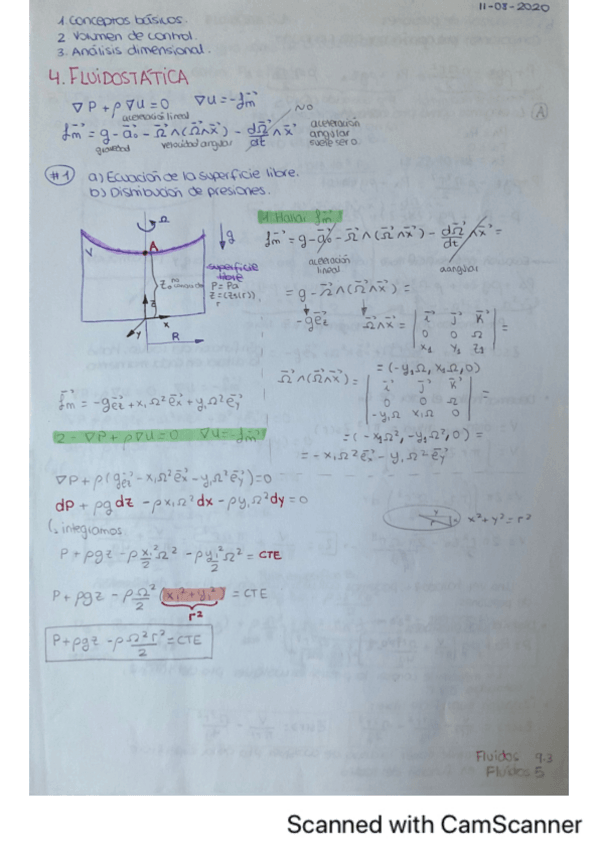 11-08-2020
1. Conceptos básicos.
2 Volumen de control.
3. Análisis dimensional.
4. FLUIDOSTÁTICA
∇P + ρ∇U = 0    ∇U = -f⃗m
NO
aceleración lineal
f⃗m = g⃗ - a⃗o - Ω⃗∧(Ω⃗∧x⃗) - dΩ⃗/dt ∧ x⃗
aceleración angular suele ser 0.
gravedad    velocidad angular
#1 a) Ecuación de la superficie libre.
b) Distribución de presiones.
Ω
g
A
superficie libre
P = Pa
Z = (zs(r))
r
Z
x
y
R
1 Hallar f⃗m
f⃗m = g - g⃗o - Ω⃗∧(Ω⃗∧x⃗) - dΩ⃗/dt ∧ x⃗ =
aceleración lineal    a angular
= g - Ω⃗∧(Ω⃗∧x⃗) =
-ge⃗z    Ω⃗∧x⃗ = | i⃗ j⃗ k⃗ | =
0 0 Ω
x1 y1 z1
= (-y1Ω, x1Ω, 0)
Ω⃗∧(Ω⃗∧x⃗) = | i⃗ j⃗ k⃗ | =
0 0 Ω
-y1Ω x1Ω 0
= (-x1Ω², -y1Ω², 0) =
= -x1Ω²e⃗x - y1Ω²e⃗y
f⃗m = -ge⃗z + x1Ω²e⃗x + y1Ω²e⃗y
2 - ∇P + ρ∇U = 0    ∇U = -f⃗m
∇P + ρ(ge⃗z - x1Ω²e⃗x - y1Ω²e⃗y) = 0
dP + ρg dz - ρx1Ω²dx - ρy1Ω²dy = 0
r
x² + y² = r²
integramos
P + ρgz - ρ x1²/2 Ω² - ρ y1²/2 Ω² = CTE
P + ρgz - ρ Ω²/2 (x1² + y1²) = CTE
r²
P + ρgz - ρ Ω²r²/2 = CTE
Fluidos 9.3
Fluidos 5
Scanned with CamScanner